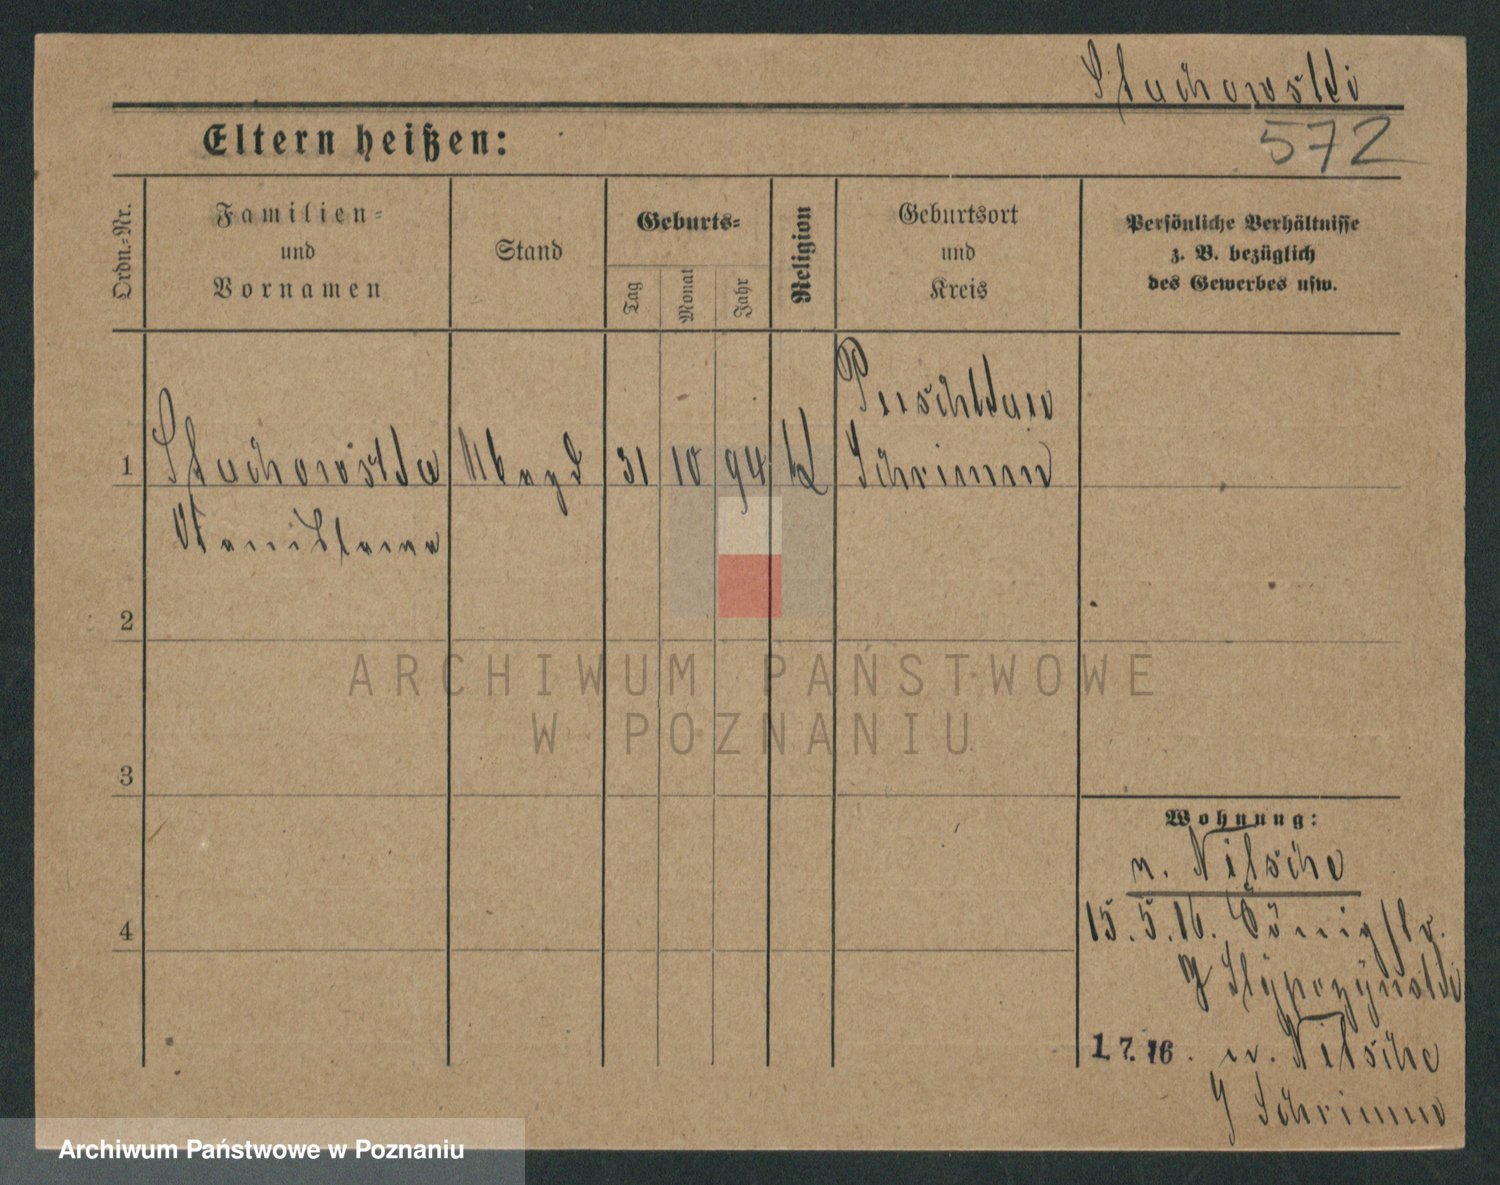 Stachowski
572
Eltern heißen:
Ordn.-Nr.
Familien-
und
Vornamen
Stand
Geburts-
Tag
Monat
Jahr
Religion
Geburtsort
und
Kreis
Persönliche Verhältnisse
z. B. bezüglich
des Gewerbes usw.
1
Stachowska
Magd
31
10
94
k
Puschkau
Schrimm
Stanislawa
2
ARCHIWUM PAŃSTWOWE
W POZNANIU
3
Wohnung:
n. Nitsche
4
15.5.16. Königstr.
1.7.16. n. Nitsche
Schrimm
Archiwum Państwowe w Poznaniu